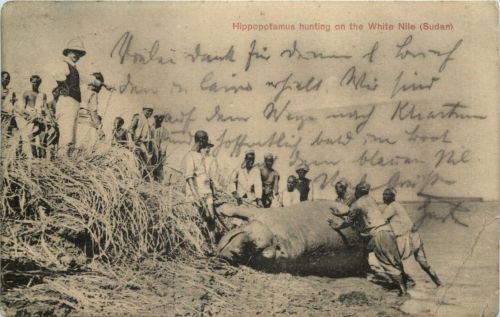 Hippopotamus hunting on the White Nile (Sudan)
Vielen dank für deinen l. brief
den in Cairo erhielt. Wir sind
auf dem Wege nach Khartum
hoffentlich bald im boot
dem blauen Nil